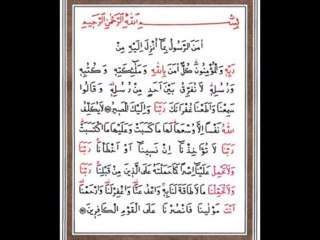 بِسْمِ اللّٰهِ الرَّحْمٰنِ الرَّحِيمِ
اٰمَنَ الرَّسُولُ بِمَٓا اُنْزِلَ اِلَيْهِ مِنْ
رَبِّهِ وَالْمُؤْمِنُونَ كُلٌّ اٰمَنَ بِاللّٰهِ وَمَلٰٓئِكَتِهِ وَكُتُبِهِ
وَرُسُلِهِ لَا نُفَرِّقُ بَيْنَ اَحَدٍ مِنْ رُسُلِهِ وَقَالُوا
سَمِعْنَا وَاَطَعْنَا غُفْرَانَكَ رَبَّنَا وَاِلَيْكَ الْمَصِيرُ لَا يُكَلِّفُ
اللّٰهُ نَفْسًا اِلَّا وُسْعَهَا لَهَا مَا كَسَبَتْ وَعَلَيْهَا مَا اكْتَسَبَتْ
رَبَّنَا لَا تُؤَاخِذْنَٓا اِنْ نَسِينَٓا اَوْ اَخْطَأْنَا رَبَّنَا
وَلَا تَحْمِلْ عَلَيْنَٓا اِصْرًا كَمَا حَمَلْتَهُ عَلَى الَّذِينَ مِنْ قَبْلِنَا رَبَّنَا
وَلَا تُحَمِّلْنَا مَا لَا طَاقَةَ لَنَا بِهِ وَاعْفُ عَنَّا وَاغْفِرْ لَنَا وَارْحَمْنَا
اَنْتَ مَوْلٰينَا فَانْصُرْنَا عَلَى الْقَوْمِ الْكَافِرِينَ